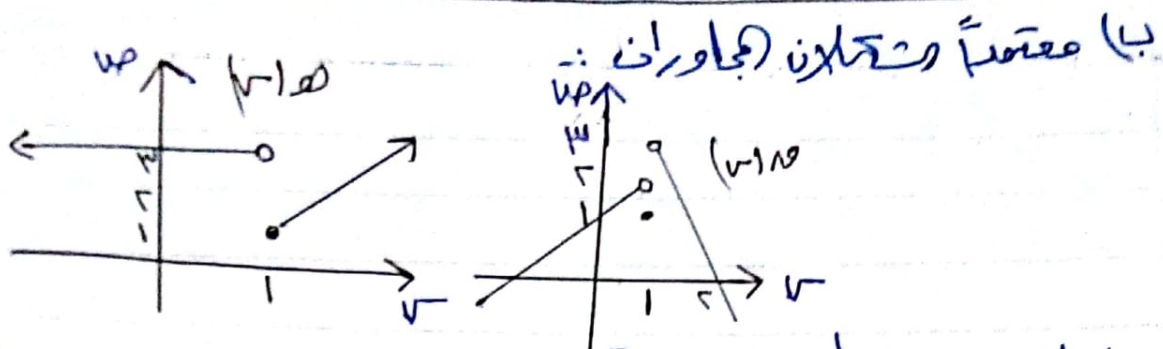 ب) معتمداً الشكلان المجاوران :-
ص
ه(س)
٣
٢
١
١
س
ص
٣
٢
١
ق(س)
١
٢
س